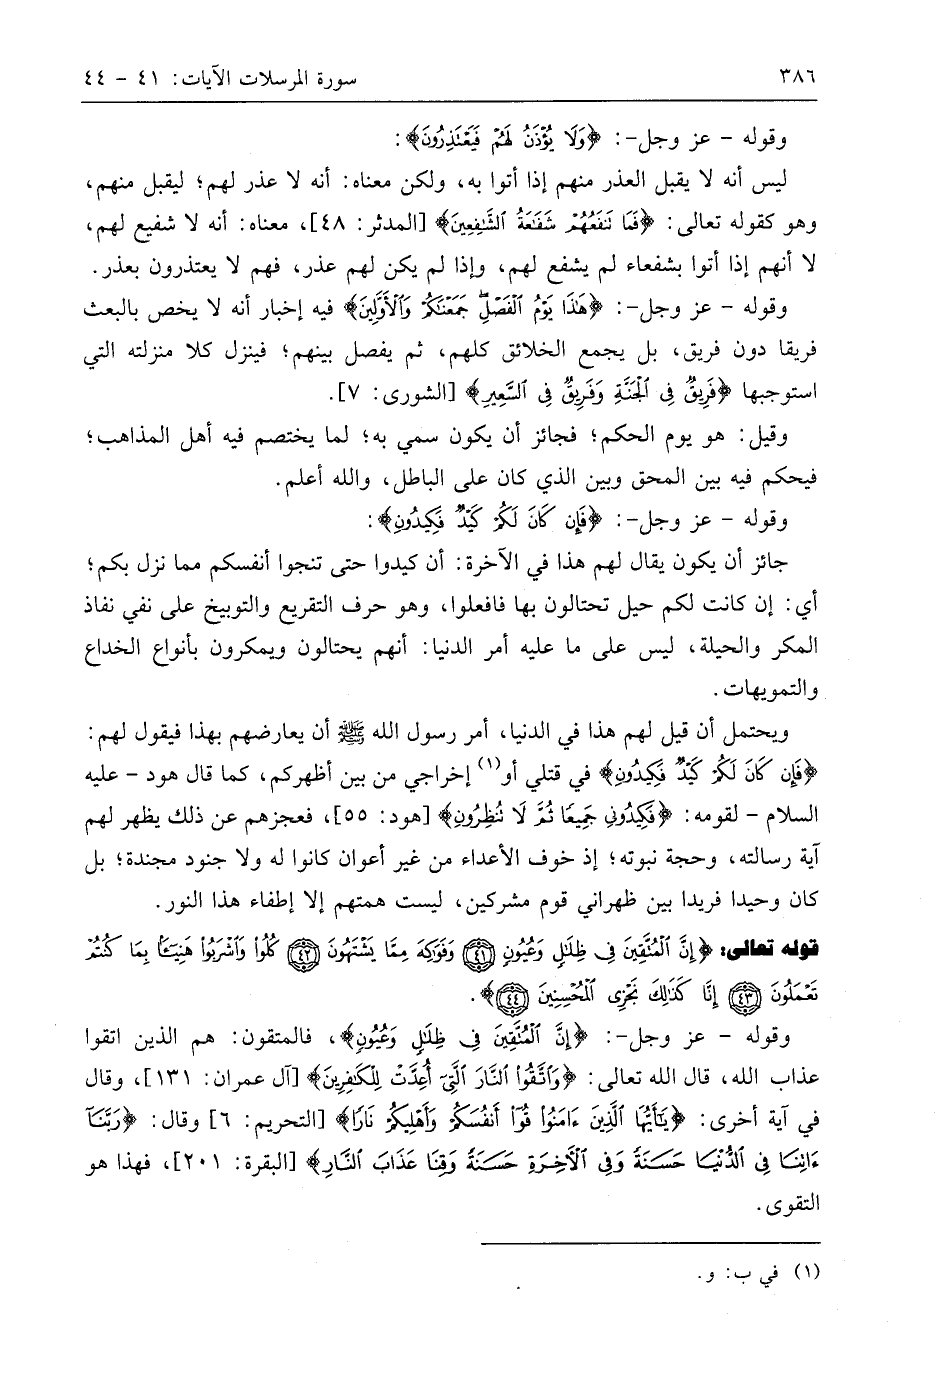 ٣٨٦ سورة المرسلات الآيات: ٤١ - ٤٤
وقوله - عز وجل-: ﴿وَلَا يُؤْذَنُ لَهُمْ فَيَعْتَذِرُونَ﴾:
ليس أنه لا يقبل العذر منهم إذا أتوا به، ولكن معناه: أنه لا عذر لهم؛ ليقبل منهم،
وهو كقوله تعالى: ﴿فَمَا تَنفَعُهُمْ شَفَٰعَةُ ٱلشَّٰفِعِينَ﴾ [المدثر: ٤٨]، معناه: أنه لا شفيع لهم،
لا أنهم إذا أتوا بشفعاء لم يشفع لهم، وإذا لم يكن لهم عذر، فهم لا يعتذرون بعذر.
وقوله - عز وجل-: ﴿هَٰذَا يَوْمُ ٱلْفَصْلِۖ جَمَعْنَٰكُمْ وَٱلْأَوَّلِينَ﴾ فيه إخبار أنه لا يخص بالبعث
فريقا دون فريق، بل يجمع الخلائق كلهم، ثم يفصل بينهم؛ فينزل كلا منزلته التي
استوجبها ﴿فَرِيقٌ فِى ٱلْجَنَّةِ وَفَرِيقٌ فِى ٱلسَّعِيرِ﴾ [الشورى: ٧].
وقيل: هو يوم الحكم؛ فجائز أن يكون سمي به؛ لما يختصم فيه أهل المذاهب؛
فيحكم فيه بين المحق وبين الذي كان على الباطل، والله أعلم.
وقوله - عز وجل-: ﴿فَإِن كَانَ لَكُمْ كَيْدٌ فَكِيدُونِ﴾:
جائز أن يكون يقال لهم هذا في الآخرة: أن كيدوا حتى تنجوا أنفسكم مما نزل بكم؛
أي: إن كانت لكم حيل تحتالون بها فافعلوا، وهو حرف التقريع والتوبيخ على نفي نفاذ
المكر والحيلة، ليس على ما عليه أمر الدنيا: أنهم يحتالون ويمكرون بأنواع الخداع
والتمويهات.
ويحتمل أن قيل لهم هذا في الدنيا، أمر رسول الله ﷺ أن يعارضهم بهذا فيقول لهم:
﴿فَإِن كَانَ لَكُمْ كَيْدٌ فَكِيدُونِ﴾ في قتلي أو(١) إخراجي من بين أظهركم، كما قال هود - عليه
السلام - لقومه: ﴿فَكِيدُونِى جَمِيعًا ثُمَّ لَا تُنظِرُونِ﴾ [هود: ٥٥]، فعجزهم عن ذلك يظهر لهم
آية رسالته، وحجة نبوته؛ إذ خوف الأعداء من غير أعوان كانوا له ولا جنود مجندة؛ بل
كان وحيدا فريدا بين ظهراني قوم مشركين، ليست همتهم إلا إطفاء هذا النور.
قوله تعالى: ﴿إِنَّ ٱلْمُتَّقِينَ فِى ظِلَٰلٍ وَعُيُونٍ ﴿٤١﴾ وَفَوَٰكِهَ مِمَّا يَشْتَهُونَ ﴿٤٢﴾ كُلُوا۟ وَٱشْرَبُوا۟ هَنِيٓـًٔا بِمَا كُنتُمْ
تَعْمَلُونَ ﴿٤٣﴾ إِنَّا كَذَٰلِكَ نَجْزِى ٱلْمُحْسِنِينَ ﴿٤٤﴾﴾.
وقوله - عز وجل-: ﴿إِنَّ ٱلْمُتَّقِينَ فِى ظِلَٰلٍ وَعُيُونٍ﴾، فالمتقون: هم الذين اتقوا
عذاب الله، قال الله تعالى: ﴿وَٱتَّقُوا۟ ٱلنَّارَ ٱلَّتِىٓ أُعِدَّتْ لِلْكَٰفِرِينَ﴾ [آل عمران: ١٣١]، وقال
في آية أخرى: ﴿يَٰٓأَيُّهَا ٱلَّذِينَ ءَامَنُوا۟ قُوٓا۟ أَنفُسَكُمْ وَأَهْلِيكُمْ نَارًا﴾ [التحريم: ٦] وقال: ﴿رَبَّنَآ
ءَاتِنَا فِى ٱلدُّنْيَا حَسَنَةً وَفِى ٱلْءَاخِرَةِ حَسَنَةً وَقِنَا عَذَابَ ٱلنَّارِ﴾ [البقرة: ٢٠١]، فهذا هو
التقوى.
(١) في ب: و.